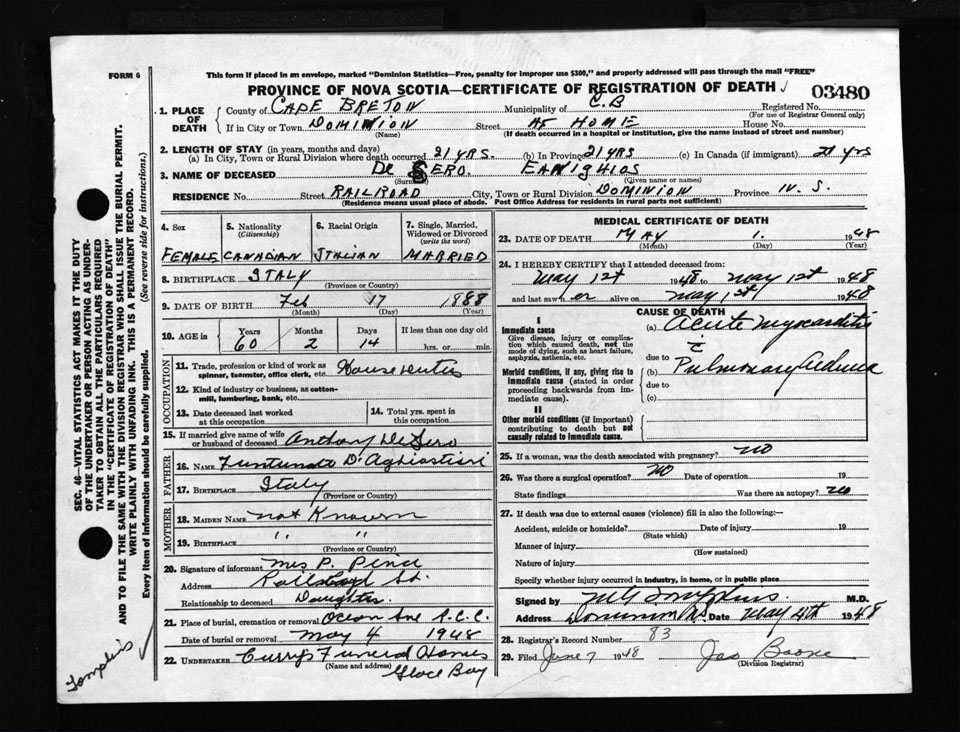 FORM 6
This form if placed in an envelope, marked "Dominion Statistics—Free, penalty for improper use $300," and properly addressed will pass through the mail "FREE"
PROVINCE OF NOVA SCOTIA—CERTIFICATE OF REGISTRATION OF DEATH
03480
1. PLACE OF DEATH
County of CAPE BRETON Municipality of C.B Registered No.
(For use of Registrar General only)
If in City or Town DOMINION Street AT HOME House No.
(Name) (If death occurred in a hospital or institution, give the name instead of street and number)
2. LENGTH OF STAY (in years, months and days)
(a) In City, Town or Rural Division where death occurred 21 YRS. (b) In Province 21 YRS (c) In Canada (if immigrant) 21 yrs
3. NAME OF DECEASED De SERO.
(Surname) (Given name or names)
RESIDENCE No. Street RAILROAD City, Town or Rural Division DOMINION Province N. S.
(Residence means usual place of abode. Post Office Address for residents in rural parts not sufficient)
4. Sex
FEMALE
5. Nationality
(Citizenship)
CANADIAN
6. Racial Origin
ITALIAN
7. Single, Married, Widowed or Divorced
(write the word)
MARRIED
8. BIRTHPLACE ITALY
(Province or Country)
9. DATE OF BIRTH Feb 17 1888
(Month) (Day) (Year)
10. AGE in Years Months Days If less than one day old
60 2 14 hrs. or min.
OCCUPATION
11. Trade, profession or kind of work as spinner, teamster, office clerk, etc.
12. Kind of industry or business, as cotton-mill, lumbering, bank, etc.
13. Date deceased last worked at this occupation
14. Total yrs. spent in this occupation
15. If married give name of wife or husband of deceased Anthony DeSero
FATHER
16. NAME
17. BIRTHPLACE Italy
(Province or Country)
MOTHER
18. MAIDEN NAME not Known
19. BIRTHPLACE " "
(Province or Country)
20. Signature of informant Mrs P.
Address Railroad St.
Relationship to deceased Daughter
21. Place of burial, cremation or removal
Date of burial or removal May 4 1948
22. UNDERTAKER Curry's Funeral Homes
(Name and address) Glace Bay
MEDICAL CERTIFICATE OF DEATH
23. DATE OF DEATH MAY 1. 1948
(Month) (Day) (Year)
24. I HEREBY CERTIFY that I attended deceased from:
May 1st 1948 to May 1st 1948
and last saw er alive on May 1st 1948
CAUSE OF DEATH
I
Immediate cause
Give disease, injury or complication which caused death, not the mode of dying, such as heart failure, asphyxia, asthenia, etc.
(a) Acute Myocarditis
c̄
due to Pulmonary Edema
Morbid conditions, if any, giving rise to immediate cause (stated in order proceeding backwards from immediate cause).
(b)
due to
(c)
II
Other morbid conditions (if important) contributing to death but not causally related to immediate cause.
25. If a woman, was the death associated with pregnancy? NO
26. Was there a surgical operation? NO Date of operation 19
State findings Was there an autopsy? NO
27. If death was due to external causes (violence) fill in also the following—
Accident, suicide or homicide? Date of injury 19
(State which)
Manner of injury
(How sustained)
Nature of injury
Specify whether injury occurred in industry, in home, or in public place
Signed by M.D.
Address Date May 4th 1948
28. Registrar's Record Number 83
29. Filed June 7 1948 Jas Boone
(Division Registrar)
SEC. 46—VITAL STATISTICS ACT MAKES IT THE DUTY
OF THE UNDERTAKER OR PERSON ACTING AS UNDER-
TAKER TO OBTAIN ALL THE PARTICULARS REQUIRED
IN THE "CERTIFICATE OF REGISTRATION OF DEATH"
AND TO FILE THE SAME WITH THE DIVISION REGISTRAR WHO SHALL ISSUE THE BURIAL PERMIT.
WRITE PLAINLY WITH UNFADING INK. THIS IS A PERMANENT RECORD.
Every item of information should be carefully supplied. (See reverse side for instructions.)
Tompkins